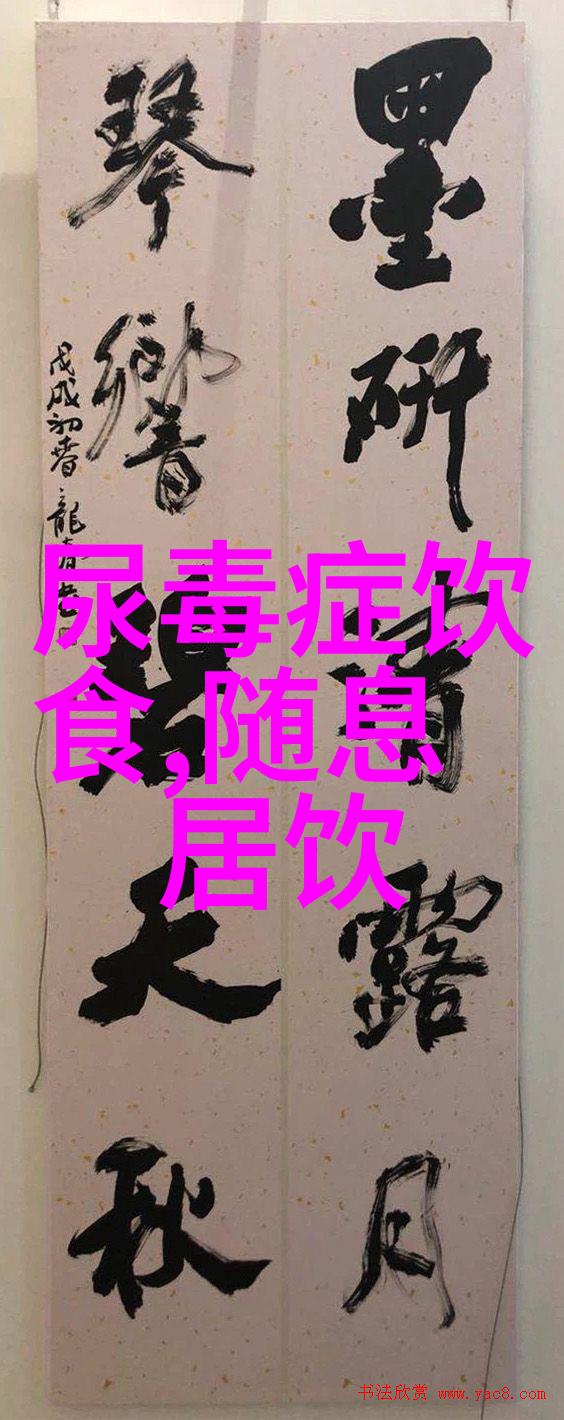 墨研露月
琴響天秋
戊戌初春龍
尿毒症饮
食,随息
居饮
书法欣赏 www.yac8.com